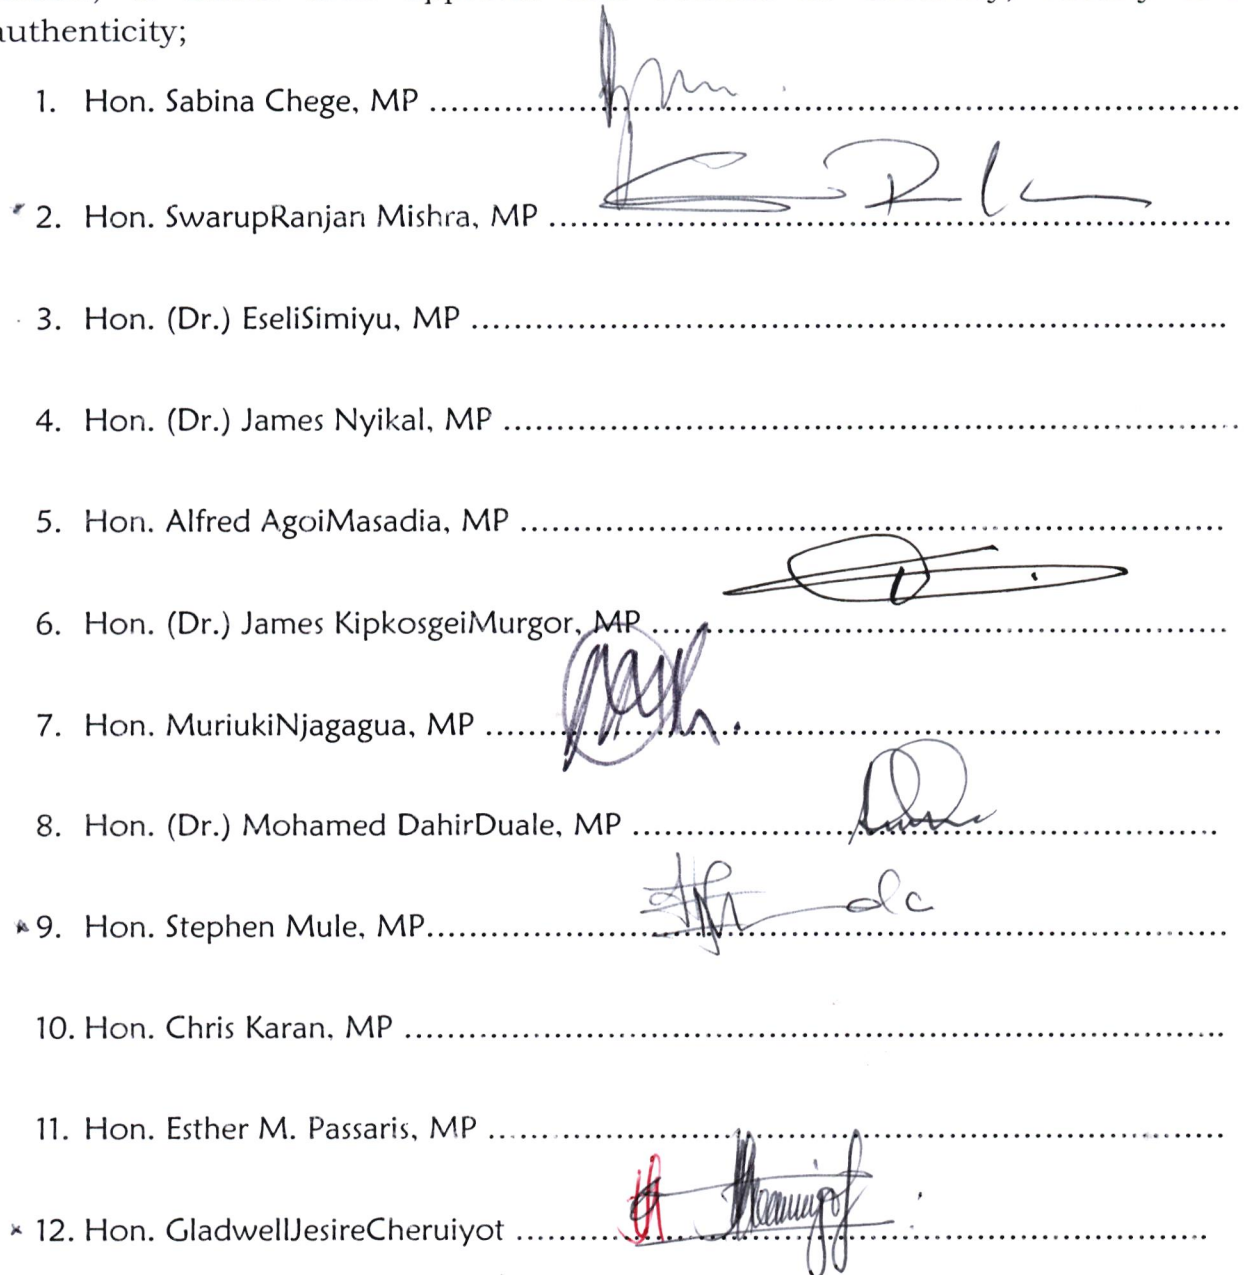 authenticity;
1. Hon. Sabina Chege, MP ..........................................................................
2. Hon. SwarupRanjan Mishra, MP ...............................................................
3. Hon. (Dr.) EseliSimiyu, MP ......................................................................
4. Hon. (Dr.) James Nyikal, MP ....................................................................
5. Hon. Alfred AgoiMasadia, MP .................................................................
6. Hon. (Dr.) James KipkosgeiMurgor, MP .....................................................
7. Hon. MuriukiNjagagua, MP ....................................................................
8. Hon. (Dr.) Mohamed DahirDuale, MP ......................................................
9. Hon. Stephen Mule, MP..........................................................................
10. Hon. Chris Karan, MP ............................................................................
11. Hon. Esther M. Passaris, MP ....................................................................
12. Hon. GladwellJesireCheruiyot ................................................................